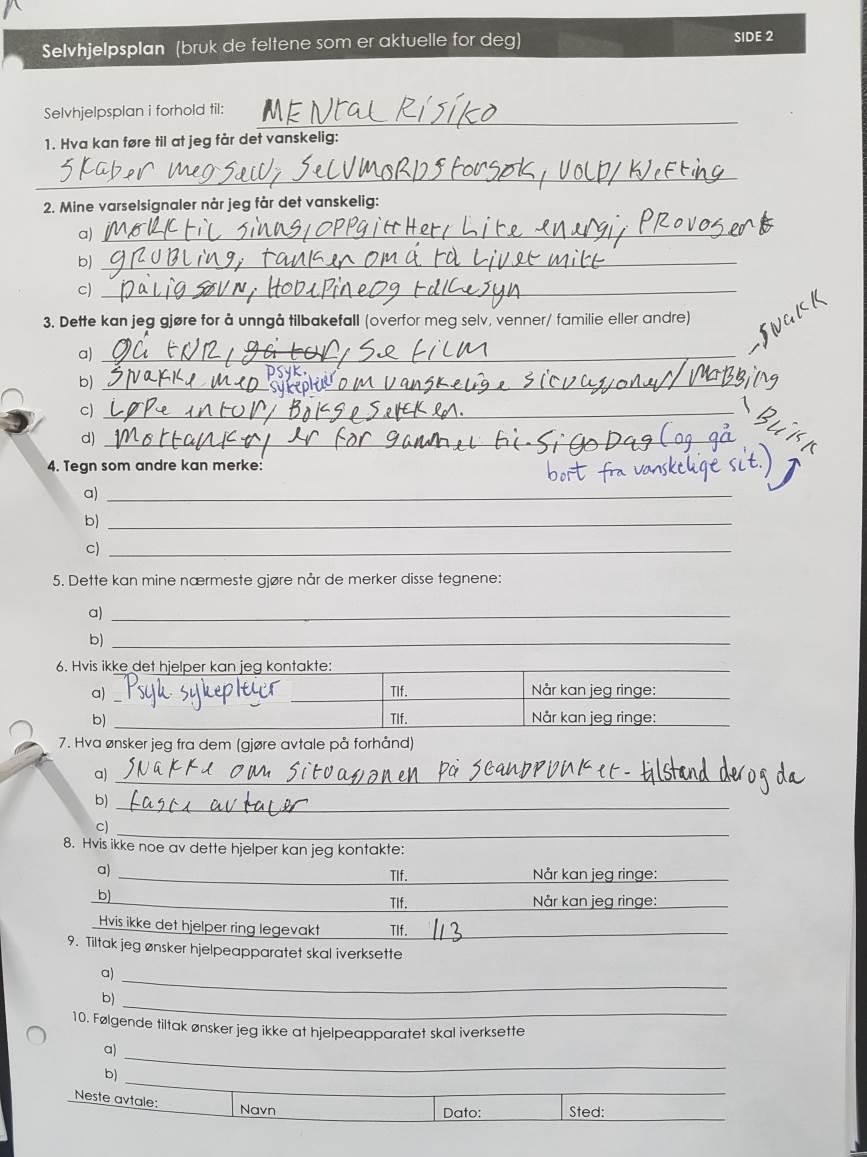 Selvhjelpsplan (bruk de feltene som er aktuelle for deg) SIDE 2
Selvhjelpsplan i forhold til: MENtal RisiKO
1. Hva kan føre til at jeg får det vanskelig:
SKaper meg selv, SelvMORDSforsøk, VOLD/
2. Mine varselsignaler når jeg får det vanskelig:
a) MØRK til sinns, OPPgittHet, Lite energi, PROVOSert
b) gRUBLing, tanken om å ta Livet mitt
c) Dålig søvn, HODEPine og
3. Dette kan jeg gjøre for å unngå tilbakefall (overfor meg selv, venner/ familie eller andre)
- Snakk
a) Gå tUR, gå tur, Se film
b) SNaKKe MeD psyk. sykepleier om vanskelige sitvasjoner/ MoBBing
c) Løpe en tur, BOKSe Sekken.
d) Mottanker, er for gammel til. Si go Dag (og gå
bort fra vanskelige sit.)
4. Tegn som andre kan merke:
a)
b)
c)
5. Dette kan mine nærmeste gjøre når de merker disse tegnene:
a)
b)
6. Hvis ikke det hjelper kan jeg kontakte:
a) Psyk. sykepleier Tlf. Når kan jeg ringe:
b) Tlf. Når kan jeg ringe:
7. Hva ønsker jeg fra dem (gjøre avtale på forhånd)
a) SNaKKe om Sitvasjonen på StanDPUNKtet - tilstand der og da
b) faste avtaler
c)
8. Hvis ikke noe av dette hjelper kan jeg kontakte:
a) Tlf. Når kan jeg ringe:
b) Tlf. Når kan jeg ringe:
Hvis ikke det hjelper ring legevakt Tlf. 113
9. Tiltak jeg ønsker hjelpeapparatet skal iverksette
a)
b)
10. Følgende tiltak ønsker jeg ikke at hjelpeapparatet skal iverksette
a)
b)
Neste avtale: Navn Dato: Sted: